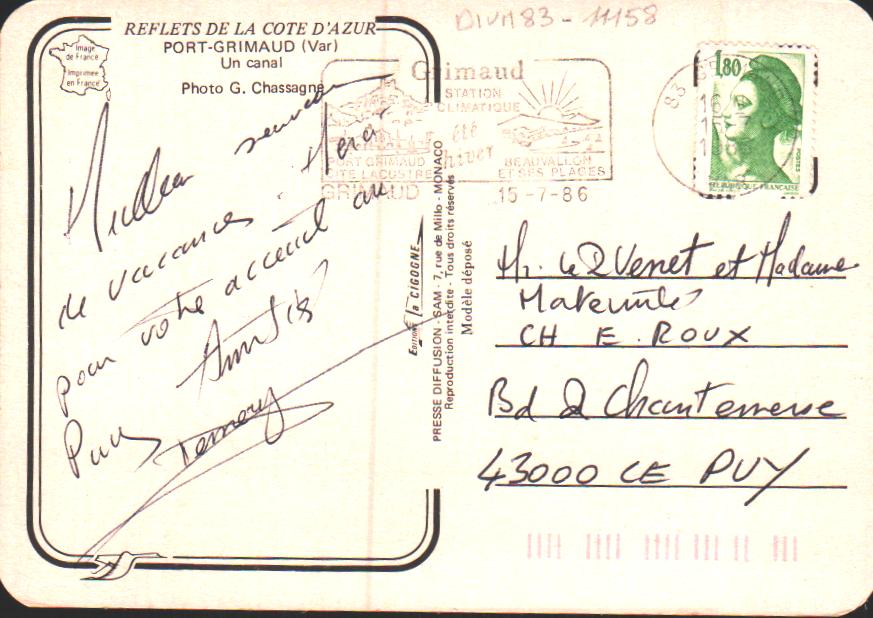 DIVM 83 - 11158
REFLETS DE LA COTE D'AZUR
PORT-GRIMAUD (Var)
Un canal
Photo G. Chassagne
Image
de France
Imprimée
en France
Meilleur souvenir
de vacances. Merci
pour votre accueil au
Puy
Amitiés
EDITIONS la CIGOGNE
PRESSE DIFFUSION - SAM - 7, rue de Millo - MONACO
Reproduction interdite - Tous droits réservés
Modèle déposé
Grimaud
STATION
CLIMATIQUE
été
hiver
PORT GRIMAUD
CITE LACUSTRE
BEAUVALLON
ET SES PLAGES
GRIMAUD
15-7-86
83
1,80
POSTES
REPUBLIQUE FRANÇAISE
Mr. le D Venet et Madame
Maternité
CH E. ROUX
Bd de Chantemesse
43000 LE PUY